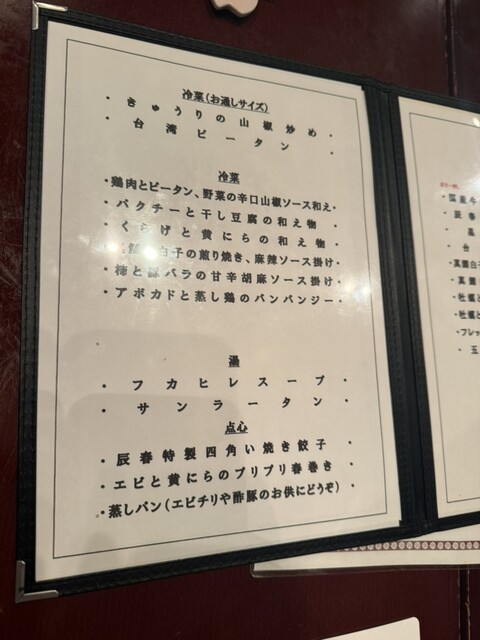 冷菜(お通しサイズ)
・きゅうりの山椒炒め・
・台湾ピータン・
冷菜
・鶏肉とピータン、野菜の辛口山椒ソース和え・
・パクチーと干し豆腐の和え物・
・くらげと黄にらの和え物・
白子の煎り焼き、麻辣ソース掛け・
・柿と豚バラの甘辛胡麻ソース掛け・
・アボカドと蒸し鶏のバンバンジー・
湯
・フカヒレスープ・
・サンラータン・
点心
・辰春特製四角い焼き餃子・
・エビと黄にらのプリプリ春巻き・
・蒸しパン(エビチリや酢豚のお供にどうぞ)
・国産牛
・辰春
・台
・真鯛白子
・真鯛
・牡蠣と
・牡蠣と
・フレッ
・玉